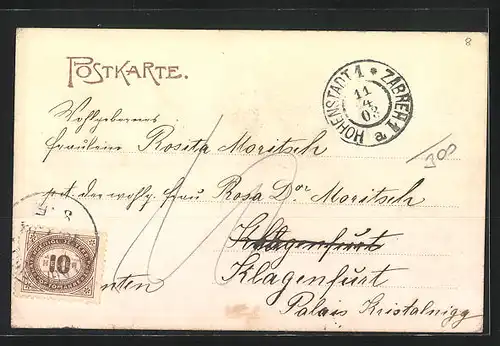 POSTKARTE.
HOHENSTADT 1 * ZÁBREH 1 a
11
4
03
8
Wohlgeborenes
Fräulein Rosita Moritsch
300
per Adr. der wohlg. Frau Rosa Dor Moritsch
Klagenfurt
Klagenfurt
10
Palais Kristalnigg